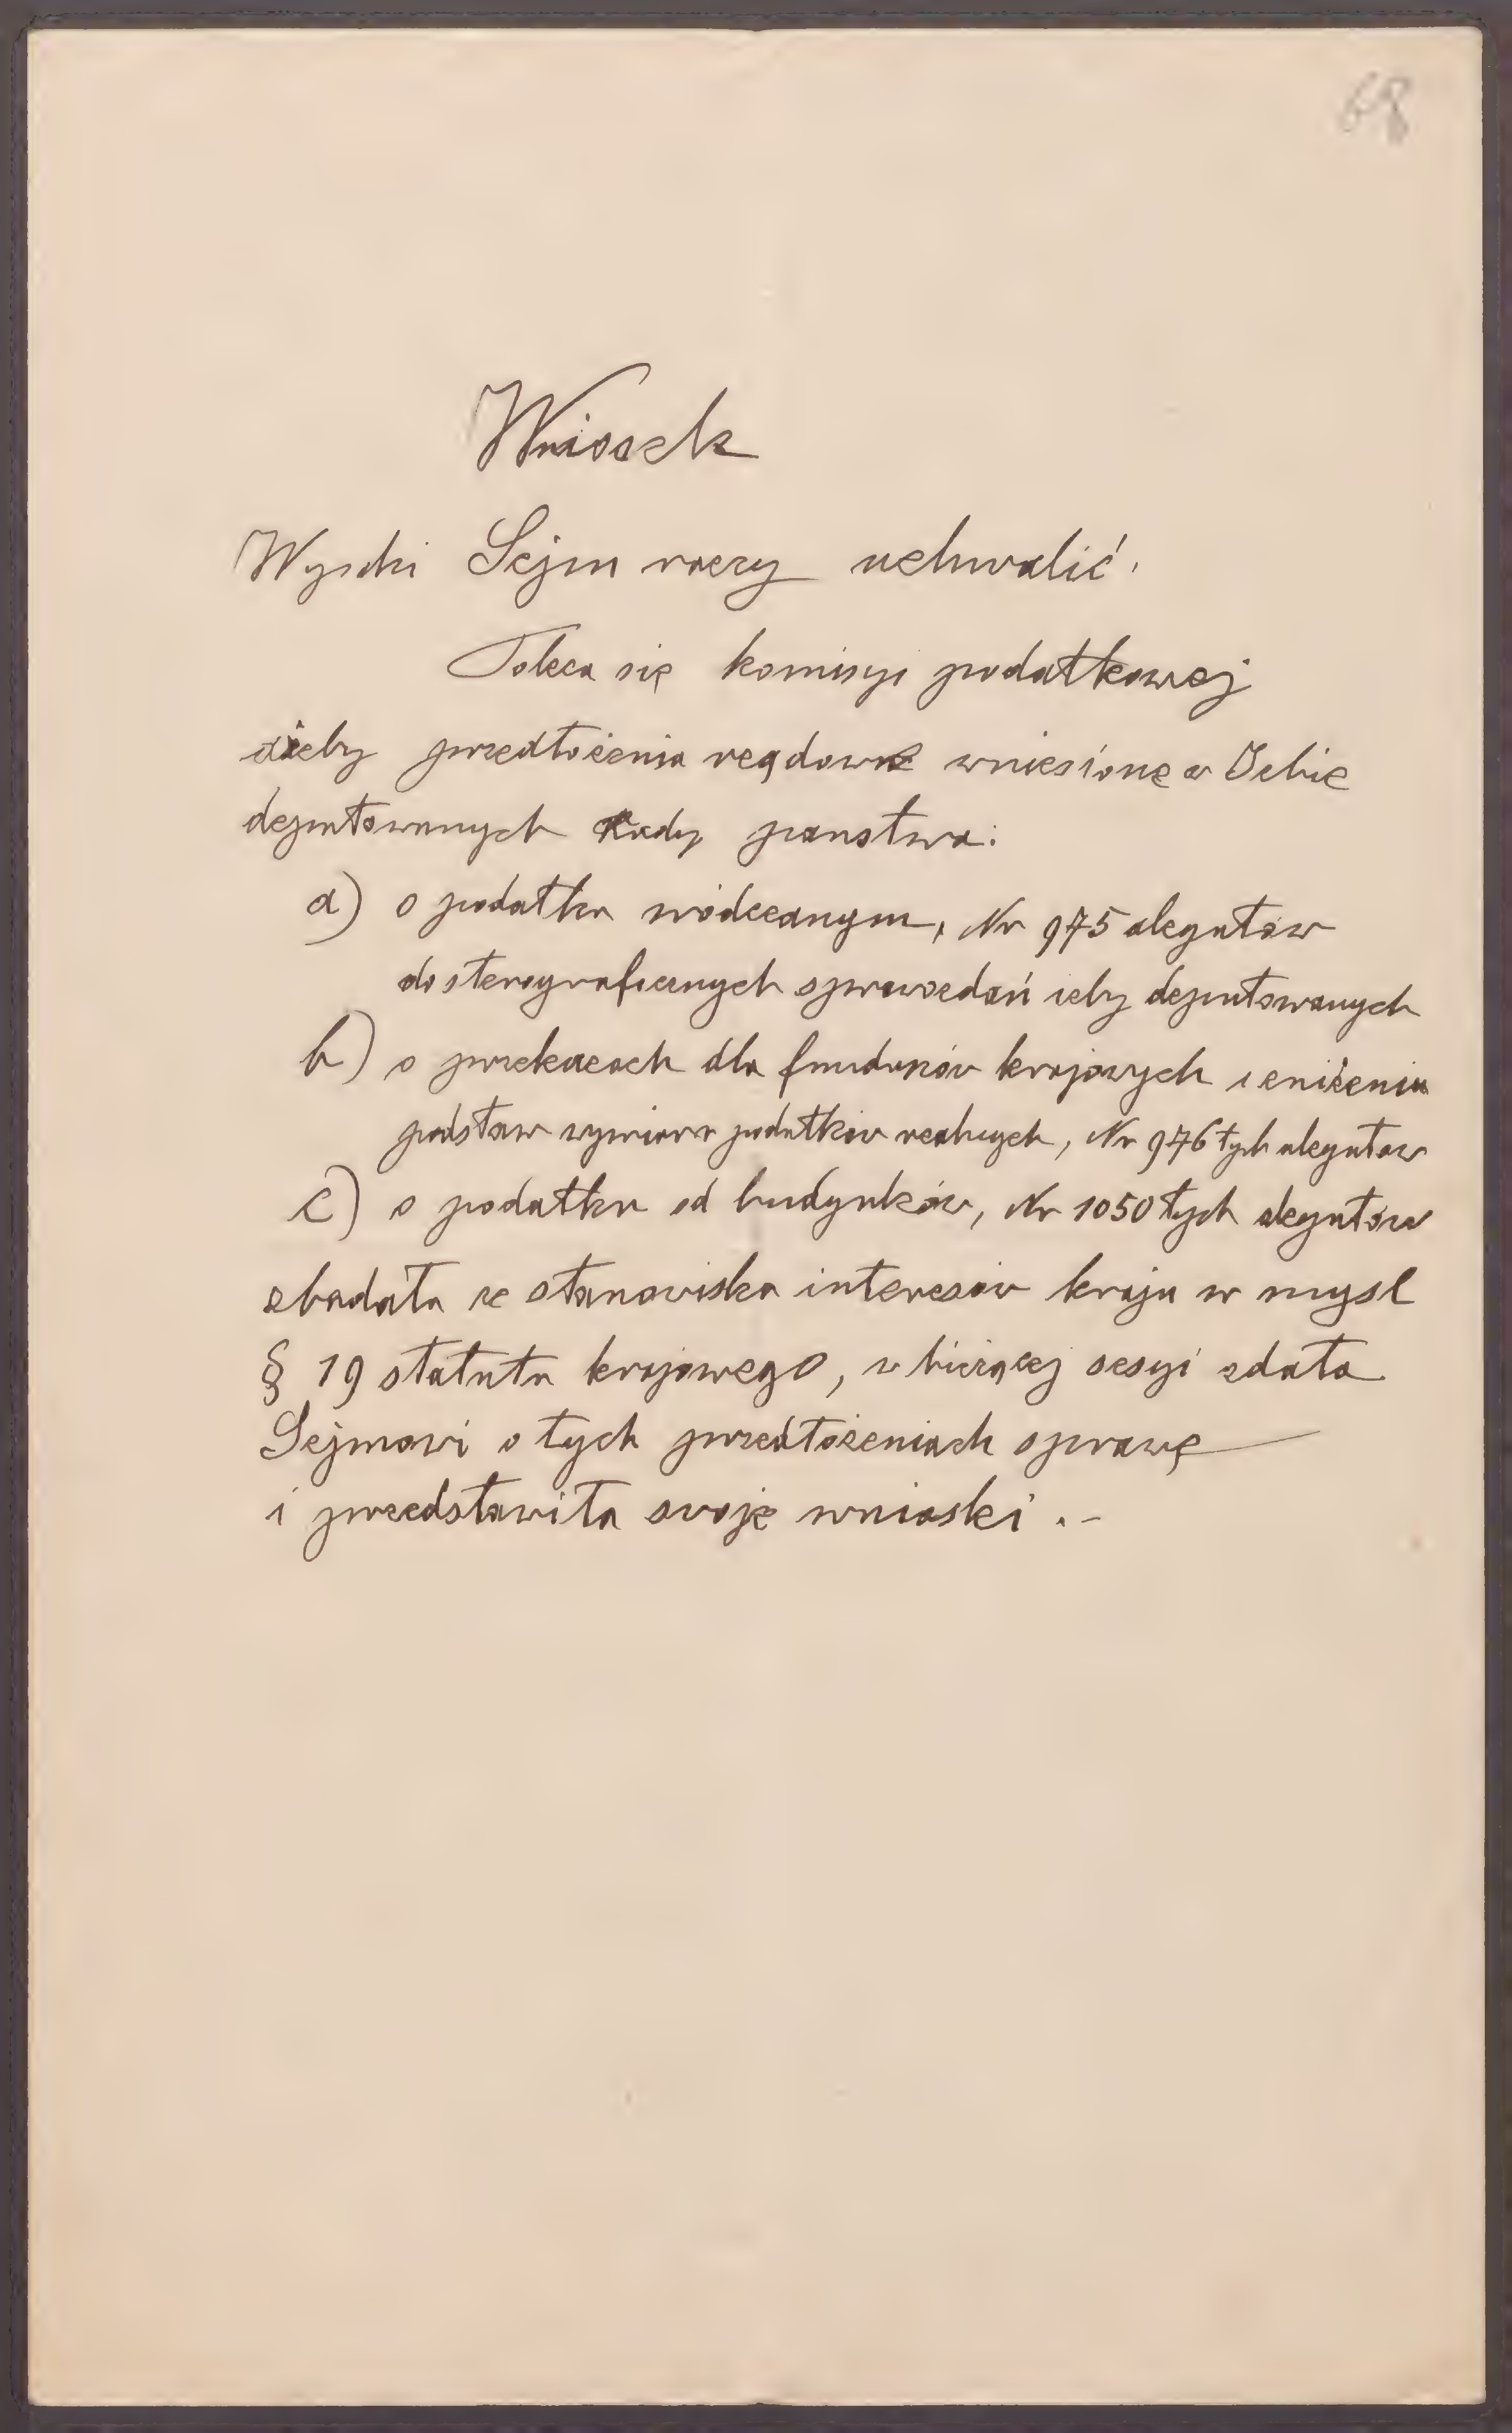 68
Wniosek
Wysoki Sejm raczy uchwalić:
Poleca się komisyi podatkowej
ażeby przedłożenia rządowe wniesione w Izbie
deputowanych Rady państwa:
a) o podatku wódczanym, Nr 975 alegatów
do stenograficznych sprawozdań izby deputowanych
b) o przekazach dla funduszów krajowych i zniżeniu
podstaw wymiaru podatków realnych, Nr 976 tych alegatów
c) o podatku od budynków, Nr 1050 tych alegatów
zbadała ze stanowiska interesów kraju w myśl
§ 19 statutu krajowego, w bieżącej sesyi zdała
Sejmowi o tych przedłożeniach sprawę
i przedstawiła swoje wnioski .-